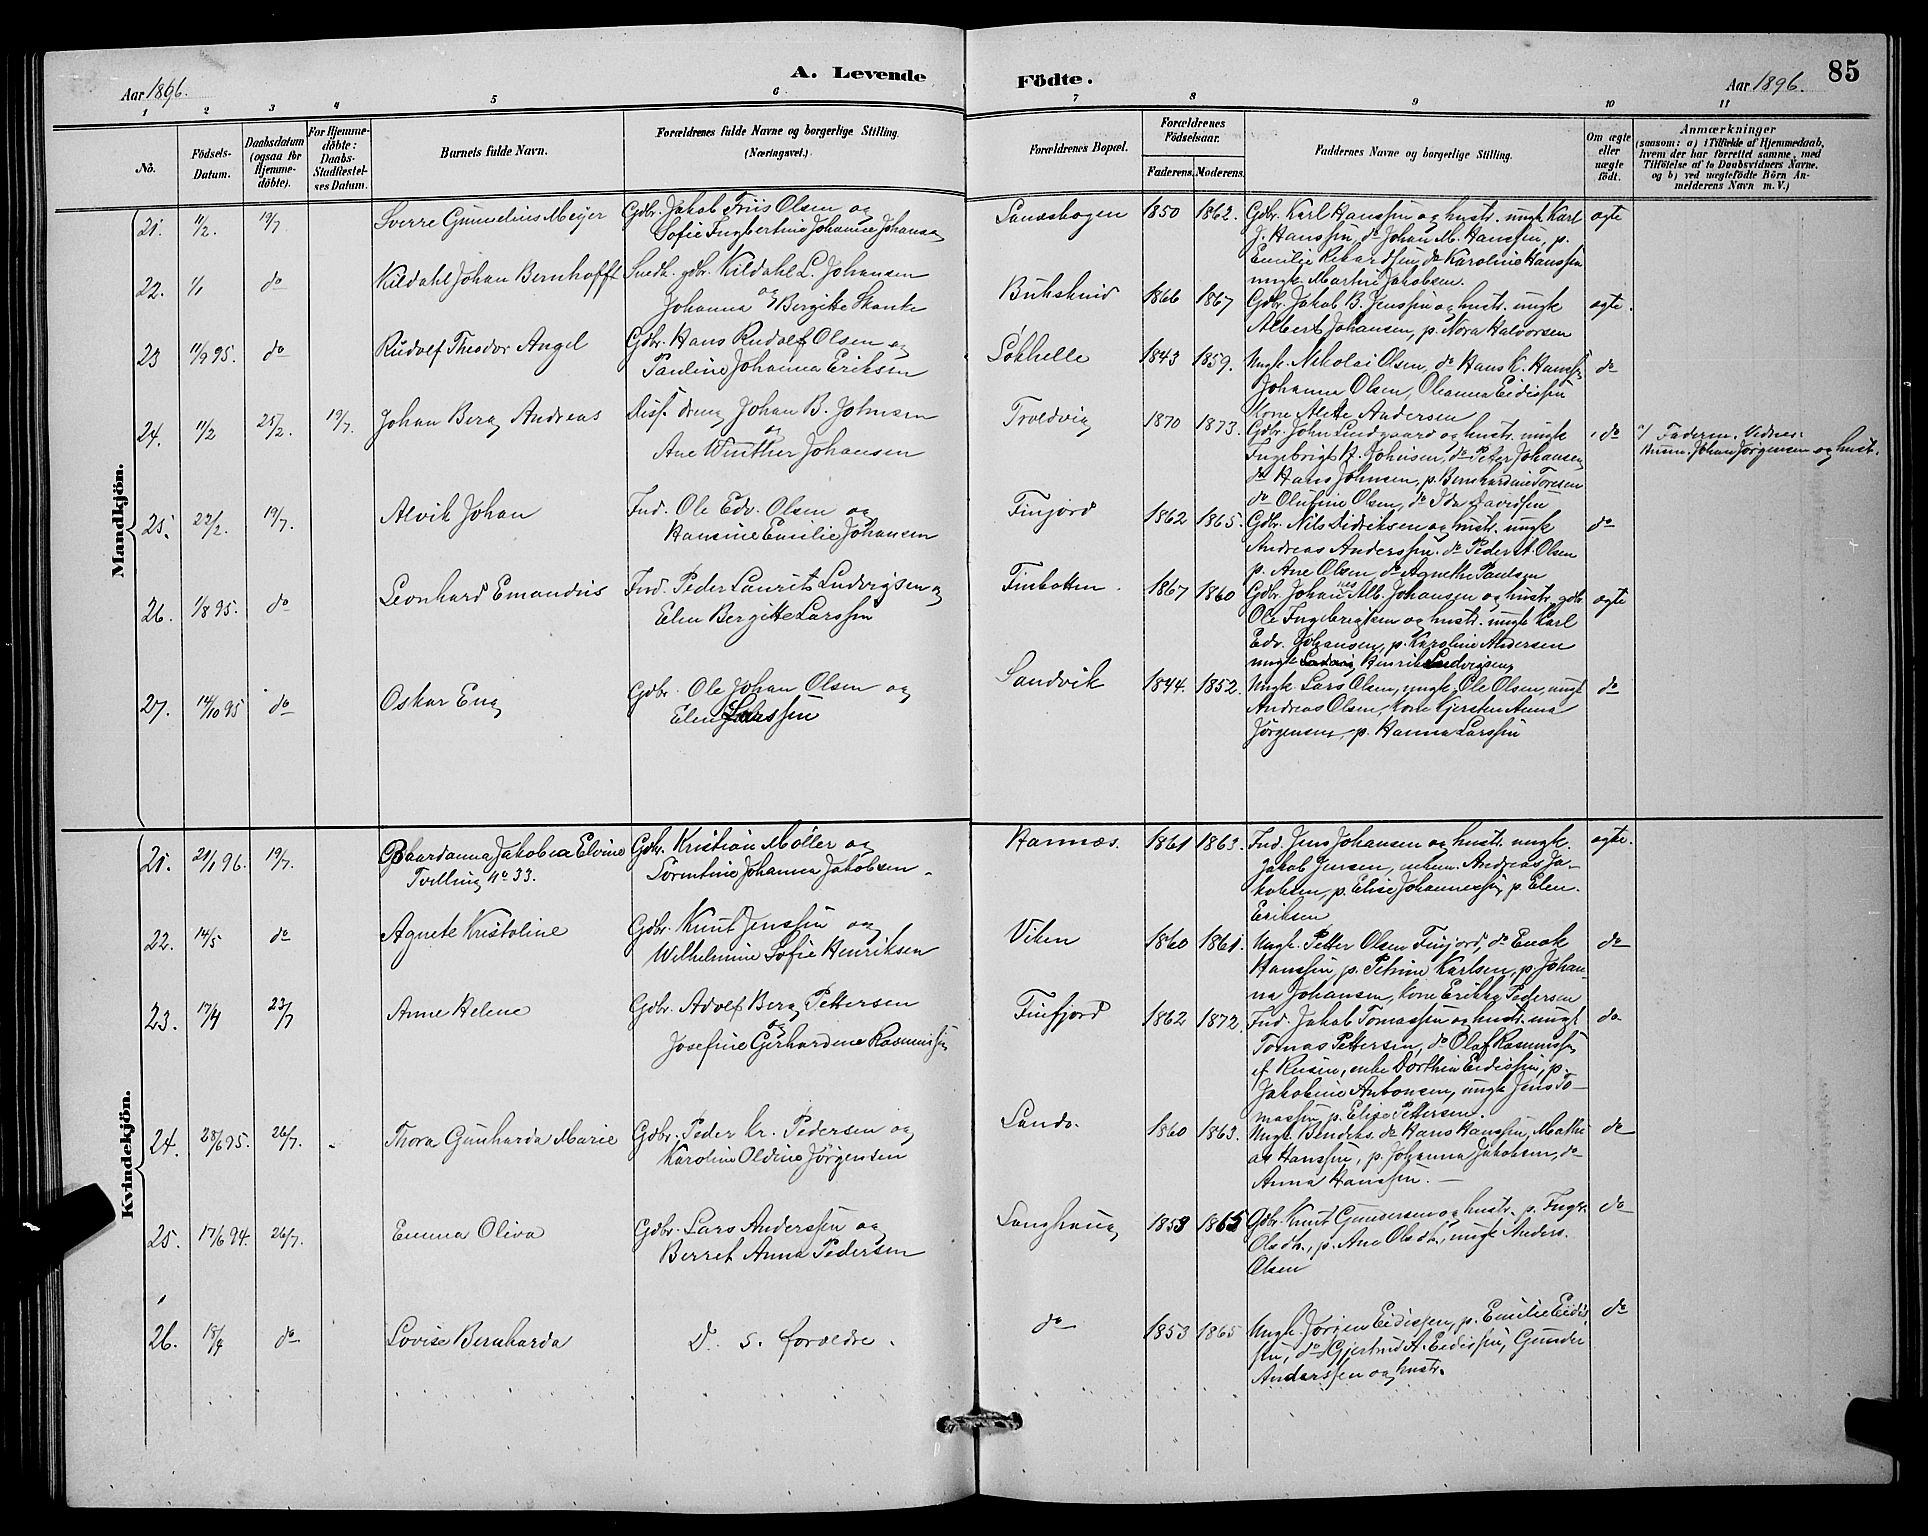 A. Levende Födte.
85
Aar 1896.
Aar 1896.
1 2 3 4 5 6 7 8 9 10 11
No.
Födsels-Datum.
Daabsdatum (ogsaa for Hjemmedöbte).
For Hjemmedöbte: Daabs-Stadfæstelses Datum.
Barnets fulde Navn.
Forældrenes fulde Navne og borgerlige Stilling.
(Næringsvei.)
Forældrenes Bopæl.
Forældrenes Födselsaar.
Faderens. Moderens.
Faddernes Navne og borgerlige Stilling.
Om ægte eller uægte födt.
Anmærkninger
(saasom: a) i Tilfælde af Hjemmedaab, hvem der har forrettet samme, med Tilföielse af to Daabsvidners Navne. og b) ved uægtefödte Börn Anmelderens Navn m. V.)
Mandkjön.
21. 11/2. 19/7 Sverre Gunelius Meyer Gdbr. Jakob Friis Olsen og
Sofie Ingbertine Johanse Johansen
1850 1862. Gdbr. Karl Hanssen og hustr. ungk Karl ægte
J. Hanssen, do Johan M. Hanssen, p.
Emilie Rikardsen, do Karoline Hanssen
ungk. Martin Jakobsen.
22. 1/1 do Kildahl Johan Bernhofft Snedk. gdbr. Kildahl L. Johansen
og
Johanna Bergitte Skanke
Bukskind 1866 1867 Gdbr. Jakob B. Jenssen og hustr. ungk ægte.
Albert Johansen, p. Nora Halvorsen
23 11/9 95. do Rudolf Theodor Angel Gdbr. Hans Rudolf Olsen og
Pauline Johanna Eriksen
Løkhelle 1843 1859. Ungk. Nikolai Olsen, do Hans K. Hanssen do
Johanna Olsen, Oleanna Eidissen
Kone Alette Andersen
24. 11/2 25/2. 19/7. Johan Berg Andreas Disp. dreng Johan B. Johnsen
og
Ane Winther Johansen
Troldvig 1870 1873. Gdbr. John Lindgaard og hustr. ungk do
Ingebrigt A. Johnsen, do Peter Johansen
do Hans Johnsen, p. Bernhardine Toresen
do Olufine Olsen, do Ida Davidsen
a/ Faderen. Vidner:
Husm. Johan Jørgensen og hust.
25. 22/2. 19/7. Alvik Johan Ind. Ole Edv. Olsen og
Hansine Emilie Johansen
Finjord 1862 1865. Gdbr. Nils Didriksen og hustr. ungk do
Andreas Anderssen. do Peder A. Olsen
p. Ane Olsen, do Agnethe Paulsen
26. 1/8 95. do Leonhard Emandus Ind. Peder Laurits Ludvigsen og
Elen Bergitte Larssen
Finbotten. 1867 1860 Gdbr. Johannes Alb. Johansen og hustr. gdbr ægte
Ole Ingebrigtsen og hustr. ungk Karl
Edv. Johansen, p. Karoline Andersen
ungk Henrik Ludvigsen
27. 14/10 95 do Oskar Eng Gdbr. Ole Johan Olsen og
Elen Larssen
Sandvik 1844. 1852. Ungk Lars Olsen, ungk. Ole Olsen, ungk do
Andreas Olsen, Kone Kjersten Anna
Jørgensen, p. Hanna Larssen
Kvindekjön.
21. 21/1 96. 19/7. Baardanna Jakobea Elvine Gdbr. Kristian Møller og
Tvilling No 33. Torentine Johanna Jakobsen.
Hamnæs. 1861 1863. Ind. Jens Johansen og hustr. ungk. ægte.
Jakob Jensen, enkem. Andreas Ja-
kobsen, p. Elise Johannessen, p. Elen
Eriksen
22. 14/5 do Agnete Kristoline Gdbr. Knut Jenssen og
Wilhelmine Sofie Henriksen
Viken 1860 1861. Ungk. Petter Olsen Finjord, do Enok do
Hanssen p. Petrine Karlsen, p. Johan-
na Johansen, Kone Erikka Pedersen
23. 17/4 23/7 Anne Helene Gdbr. Adolf Berg Pettersen
og
Josefine Gerhardine Rasmussen
Finfjord 1862 1872. Ind. Jakob Tomassen og hustr. ungk do
Tomas Pettersen, do Olaf Rasmussen
enke Dorthea Eidissen, p.
Jakobine Antonsen, ungk Jens To-
massen, p. Elise Pettersen.
24. 28/6 95. 26/7. Thora Gunharda Marie Gdbr. Peder Kr. Pedersen og
Karoline Oldine Jørgensen
Sando. 1860 1863. Ungk. Bendiks. do Hans Hanssen, Mathi- do
as Hanssen, p. Johanna Jakobsen, do
Anna Hanssen.
25. 17/6 94. 26/7. Emma Oliva Gdbr. Lars Anderssen og
Berret Anna Pedersen
Langhaug 1853 1865 Gdbr. Knut Gundersen og hustr. p. Ingbr. do
Olsdt., p. Ane Olsdt., ungk Anders
Olsen
26. 18/4 do Lovise Bernharda D. s. forældre.
do 1853 1865 Ungk. Jørgen Eidissen, p. Emilie Eidis- do
sen, do Gjertrud A. Eidissen, Gunder
Anderssen og hustr.